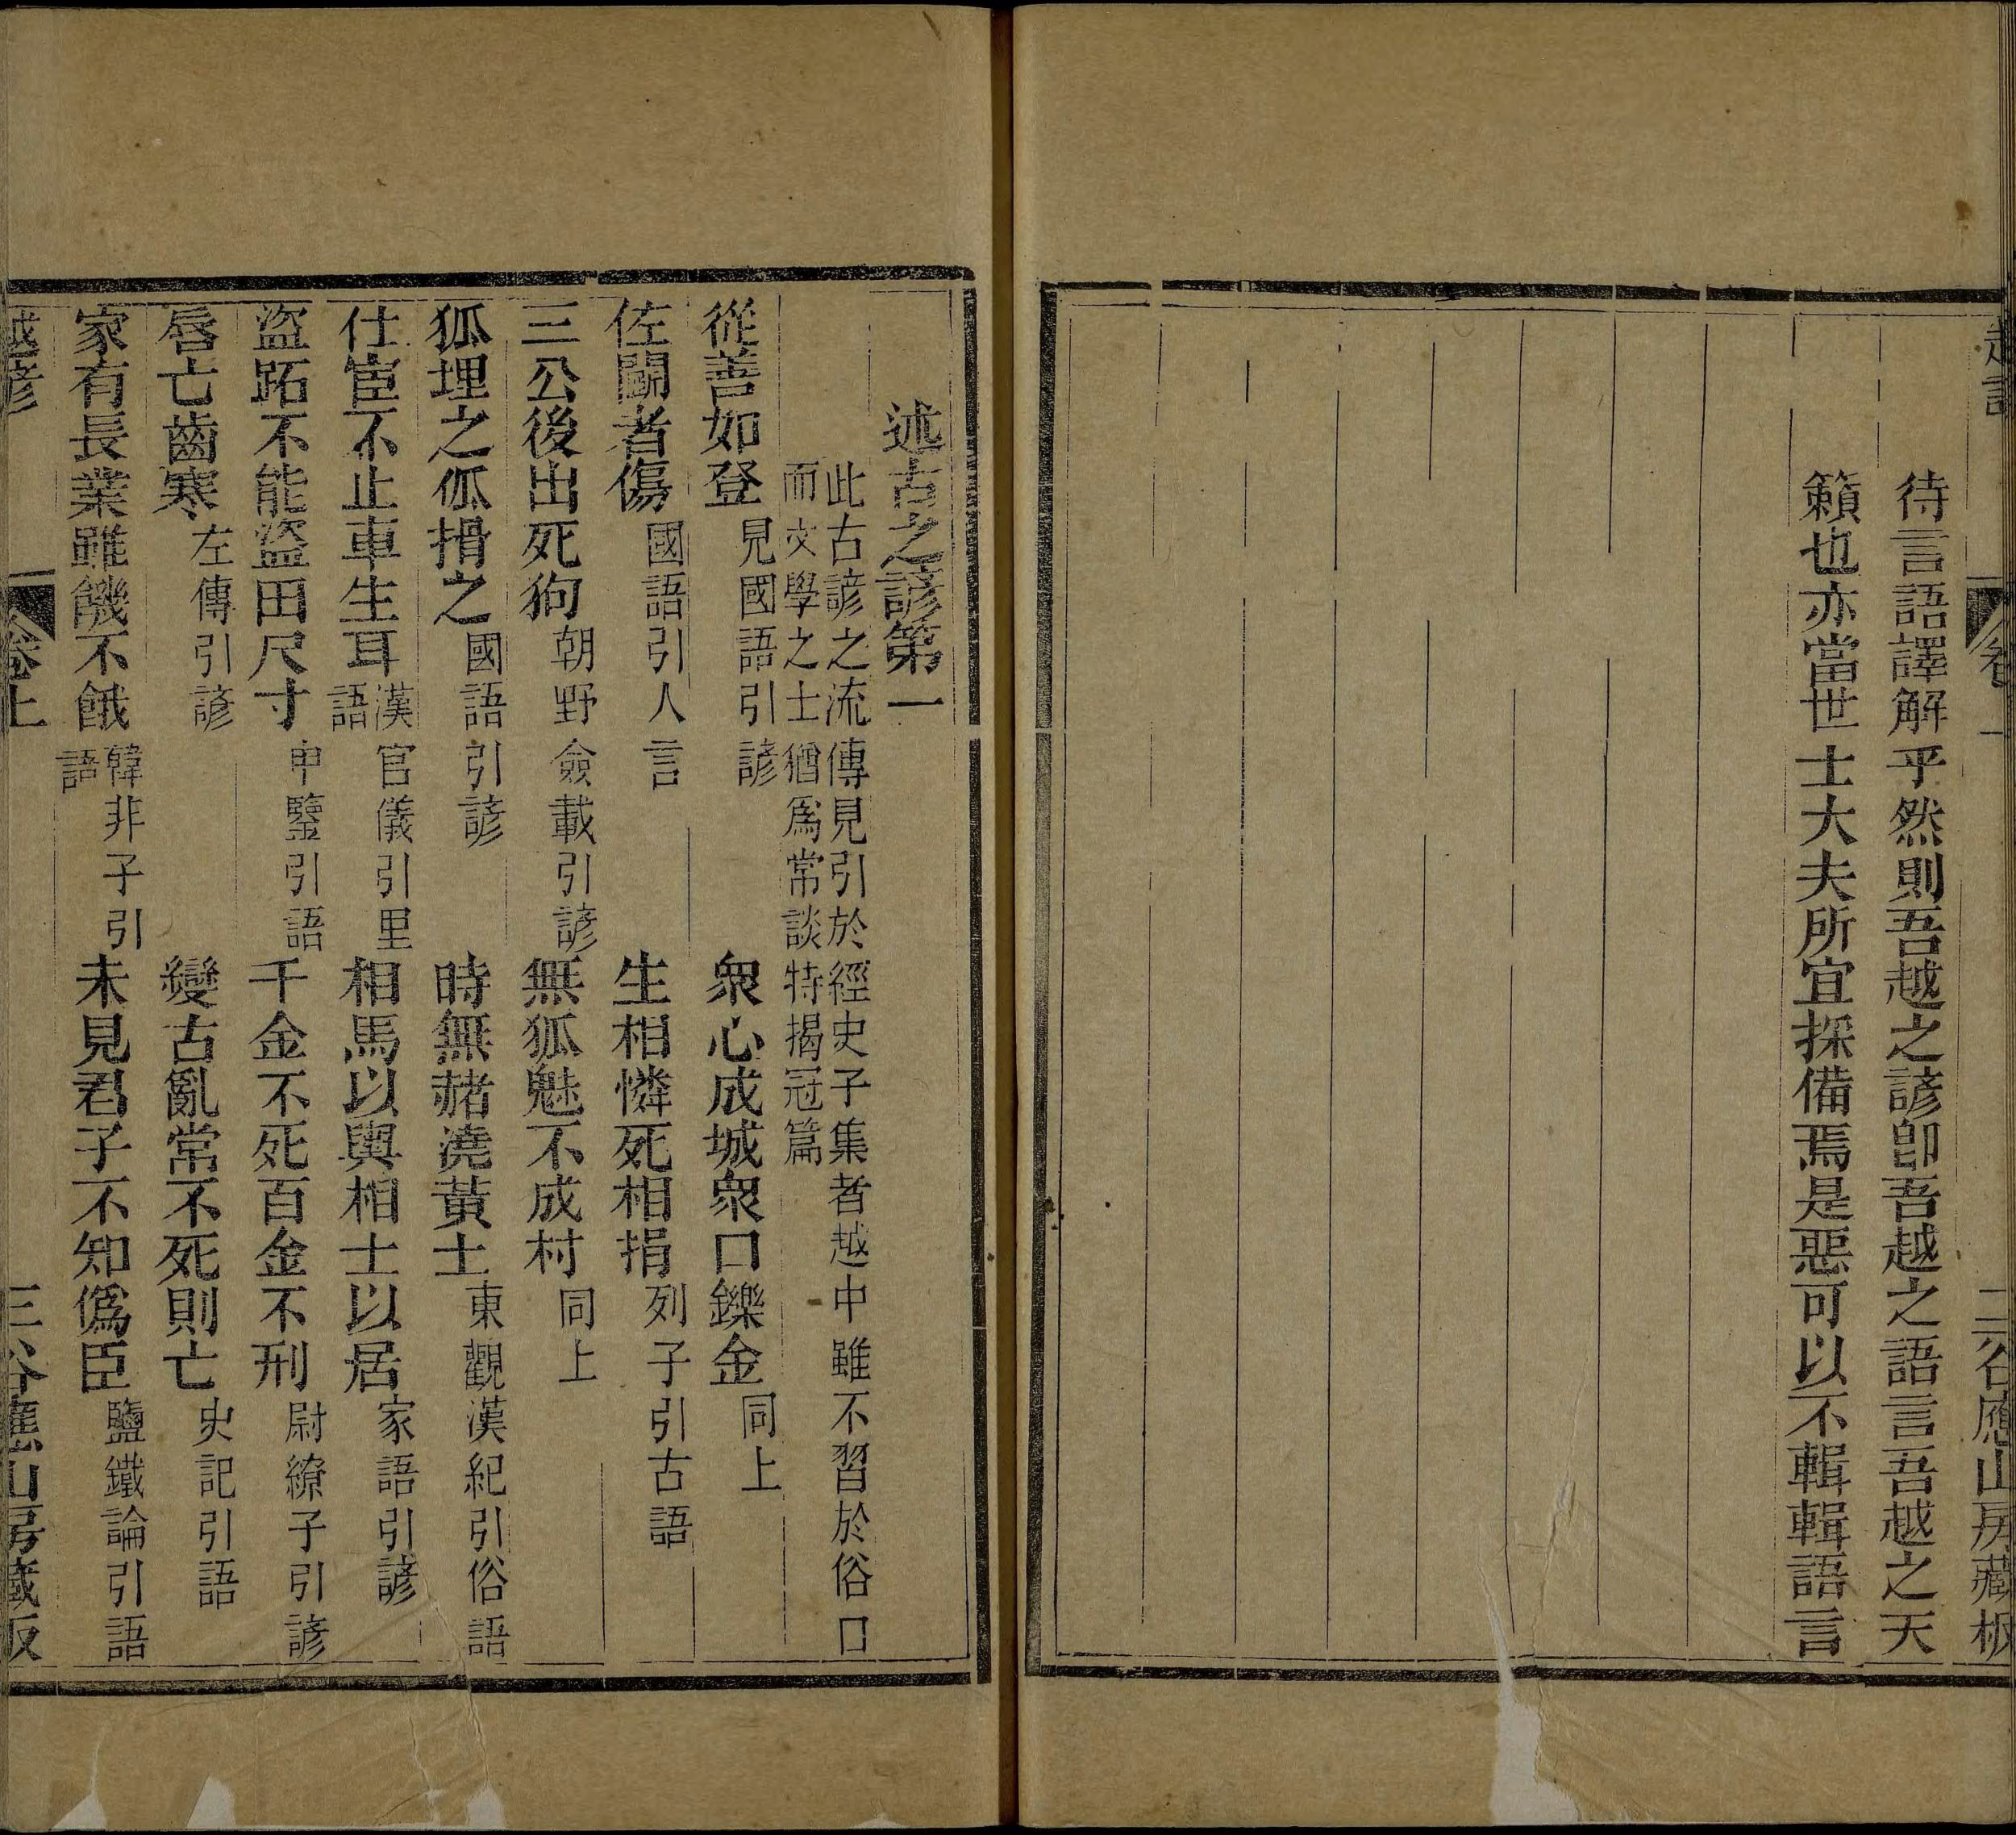 待言語譯解乎然則吾越之諺卽吾越之語言吾越之天
籟也亦當世士大夫所宜採備焉是惡可以不輯輯語言
述古之諺第一
此古諺之流傳見引於經史子集者越中雖不習於俗口
而文學之士猶爲常談特揭冠篇
從善如登 見國語引諺 衆心成城衆口鑠金 同上
佐鬭者傷 國語引人言 生相憐死相捐 列子引古語
三公後出死狗 朝野僉載引諺 無狐魅不成村 同上
狐埋之狐搰之 國語引諺 時無赭澆黃土 東觀漢紀引俗語
仕宦不止車生耳 漢官儀引里語 相馬以輿相士以居 家語引諺
盜跖不能盜田尺寸 申鑒引語 千金不死百金不刑 尉繚子引諺
唇亡齒寒 左傳引諺 變古亂常不死則亡 史記引語
家有長業雖饑不餓 韓非子引語 未見君子不知僞臣 鹽鐵論引語
越諺 卷上 三谷應山房藏板